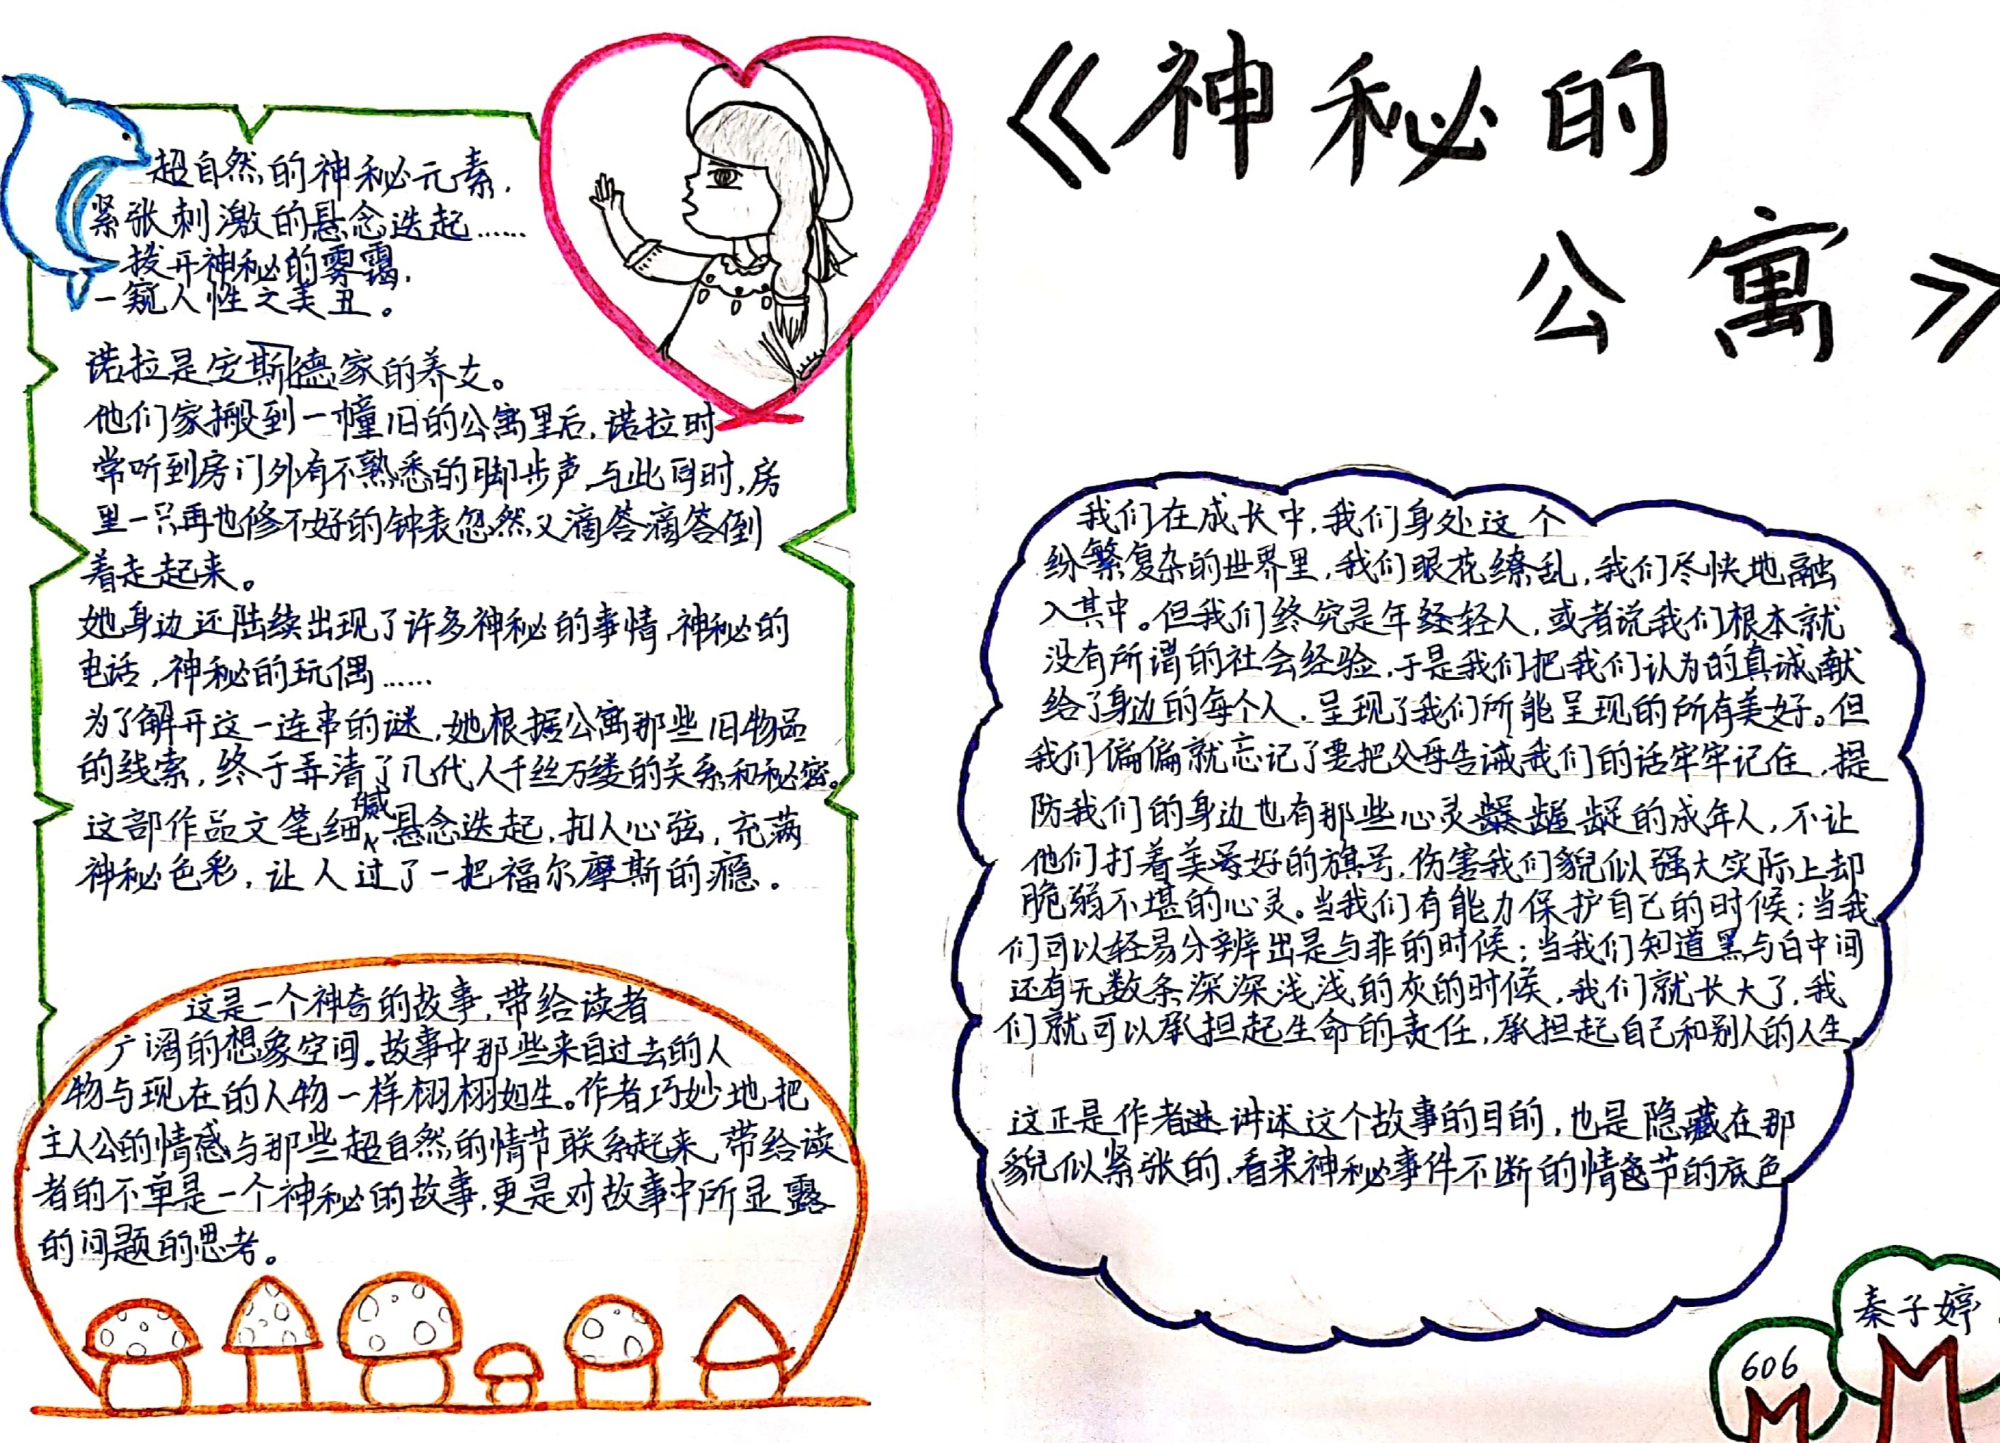 《神秘的
公寓》
超自然的神秘元素,
紧张刺激的悬念迭起……
拨开神秘的雾霭,
一窥人性之美丑。
诺拉是安斯德家的养女。
他们家搬到一幢旧的公寓里后,诺拉时
常听到房门外有不熟悉的脚步声,与此同时,房
里一只再也修不好的钟表忽然又滴答滴答倒
着走起来。
她身边还陆续出现了许多神秘的事情,神秘的
电话,神秘的玩偶……
为了解开这一连串的谜,她根据公寓那些旧物品
的线索,终于弄清了几代人千丝万缕的关系和秘密。
这部作品文笔细腻悬念迭起,扣人心弦,充满
神秘色彩,让人过了一把福尔摩斯的瘾。
这是一个神奇的故事,带给读者
广阔的想象空间。故事中那些来自过去的人
物与现在的人物一样栩栩如生。作者巧妙地把
主人公的情感与那些超自然的情节联系起来,带给读
者的不单是一个神秘的故事,更是对故事中所显露
的问题的思考。
我们在成长中,我们身处这个
纷繁复杂的世界里,我们眼花缭乱,我们尽快地融
入其中。但我们终究是年经轻人,或者说我们根本就
没有所谓的社会经验,于是我们把我们认为的真诚,献
给了身边的每个人,呈现了我们所能呈现的所有美好。但
我们偏偏就忘记了要把父母告诫我们的话牢牢记住,提
防我们的身边也有那些心灵龌龊的成年人,不让
他们打着美好的旗号,伤害我们貌似强大实际上却
脆弱不堪的心灵。当我们有能力保护自己的时候;当我
们可以轻易分辨出是与非的时候;当我们知道黑与白中间
还有无数条深深浅浅的灰的时候,我们就长大了,我
们就可以承担起生命的责任,承担起自己和别人的人生
这正是作者讲述这个故事的目的,也是隐藏在那
貌似紧张的,看来神秘事件不断的情节的底色
秦子婷
606